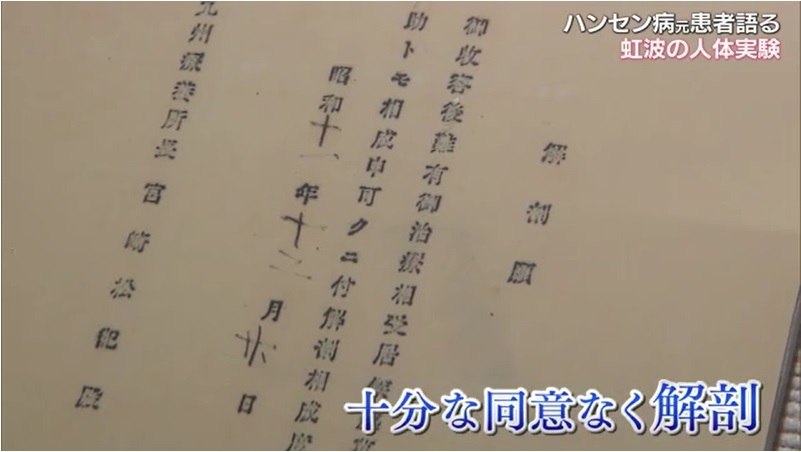 ハンセン病元患者語る
虹波の人体実験
解剖願
御收容後難有御治療相受居
助トモ相成申可クニ付解剖相成度
昭和十一年十二月 日
九州療養所長宮崎松記殿
十分な同意なく解剖